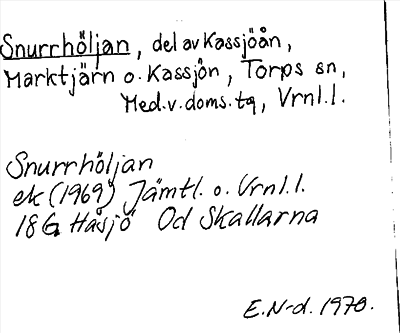 Snurrhöljan, del av Kassjöån,
Marktjärn o. Kassjön, Torps sn,
Med.v.doms.tq, Vrnl.l.
Snurrhöljan
ek (1969) Jämtl. o. Vrnl.l.
18G Håsjö Od Skallarna
E.N-d. 1970.